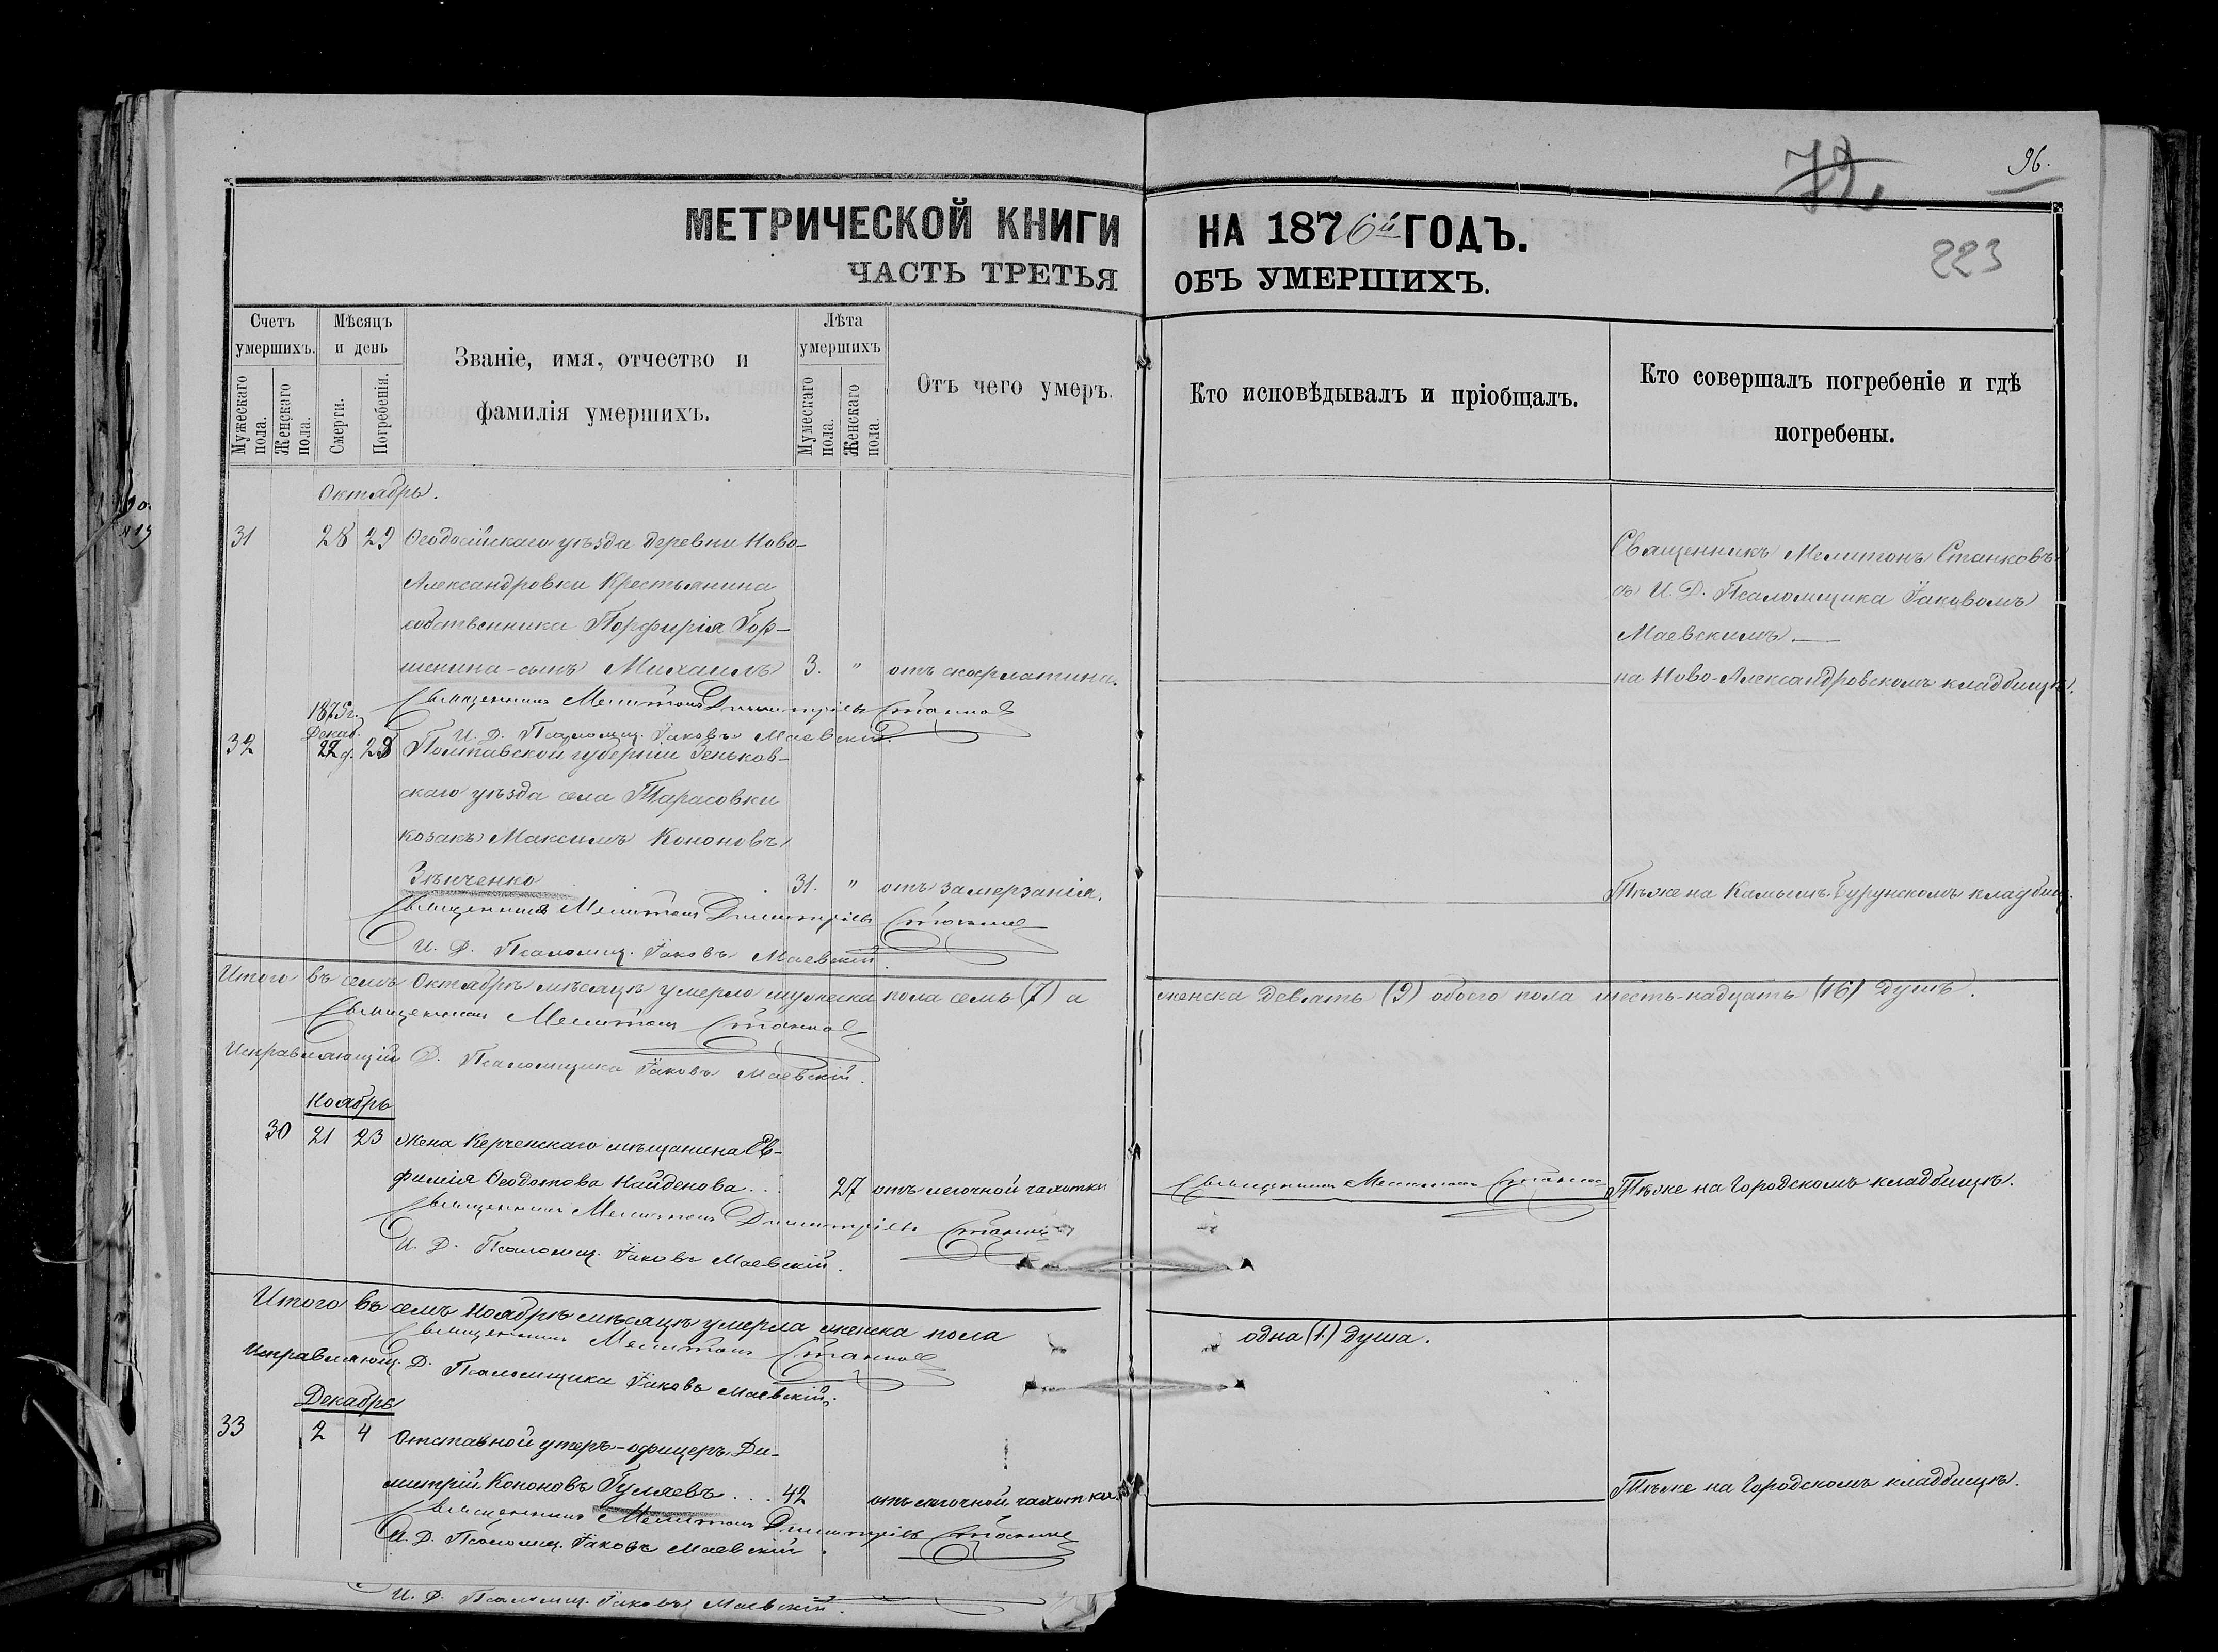 72
96.
МЕТРИЧЕСКОЙ КНИГИ НА 1876й ГОДЪ.
223
ЧАСТЬ ТРЕТЬЯ ОБЪ УМЕРШИХЪ.
Счетъ умершихъ.
Мужескаго пола.
Женскаго пола.
Мѣсяцъ и день
Смерти.
Погребенія.
Званіе, имя, отчество и
фамилія умершихъ.
Лѣта умершихъ
Мужескаго пола.
Женскаго пола.
Отъ чего умеръ.
Кто исповѣдывалъ и пріобщалъ.
Кто совершалъ погребеніе и гдѣ
погребены.
Октябрь.
31 28 29 Ѳеодосійскаго уѣзда деревни Ново-
Александровки Крестьянина
собственника Порфирія Гор-
шенина-сынъ Михаилъ 3. " отъ скарлатина.
Священникъ Мелитонъ Станковъ
съ И. Д. Псаломщика Іаковомъ
Маевскимъ.
на Ново-Александровскомъ кладбищѣ.
Священникъ Мелитонъ Димитріевъ Станковъ
И. Д. Псаломщ. Іаковъ Маевскій.
1875г.
Декаб.
32 22 д. 28 Полтавской губерніи Зеньков-
скаго уѣзда села Тарасовки
козакъ Максимъ Кононовъ
Зѣнченко 31. " отъ замерзанія. Тѣже на Камышъ-Бурунскомъ кладбищ.
Священникъ Мелитонъ Димитріевъ Станковъ
И. Д. Псаломщ. Іаковъ Маевскій.
Итого въ семъ Октябрѣ мѣсяцѣ умерло мужеска пола семь (7) а женска девять (9) обоего пола шесть-надцать (16) душъ.
Священникъ Мелитонъ Станковъ
Исправляющій Д. Псаломщика Іаковъ Маевскій.
Ноябрь
30 21 23 жена Керченскаго мѣщанина Ев-
фимія Ѳеодотова Найденова 27 отъ легочной чахотки Священникъ Мелитонъ Станковъ Тѣже на Городскомъ кладбищѣ.
Священникъ Мелитонъ Димитріевъ Станковъ
И. Д. Псаломщ. Іаковъ Маевскій.
Итого въ семъ Ноябрѣ мѣсяцѣ умерла женска пола одна (1.) душа.
Священникъ Мелитонъ Станковъ
Исправляющ. Д. Псаломщика Іаковъ Маевскій.
Декабрь
33 2 4 Отставной унтеръ-офицеръ Ди-
митрій Кононовъ Гуляевъ 42 отъ легочной чахотки. Тѣже на Городскомъ кладбищѣ.
Священникъ Мелитонъ Димитріевъ Станковъ
И. Д. Псаломщ. Іаковъ Маевскій.
И. Д. Псаломщ. Іаковъ Маевскій.